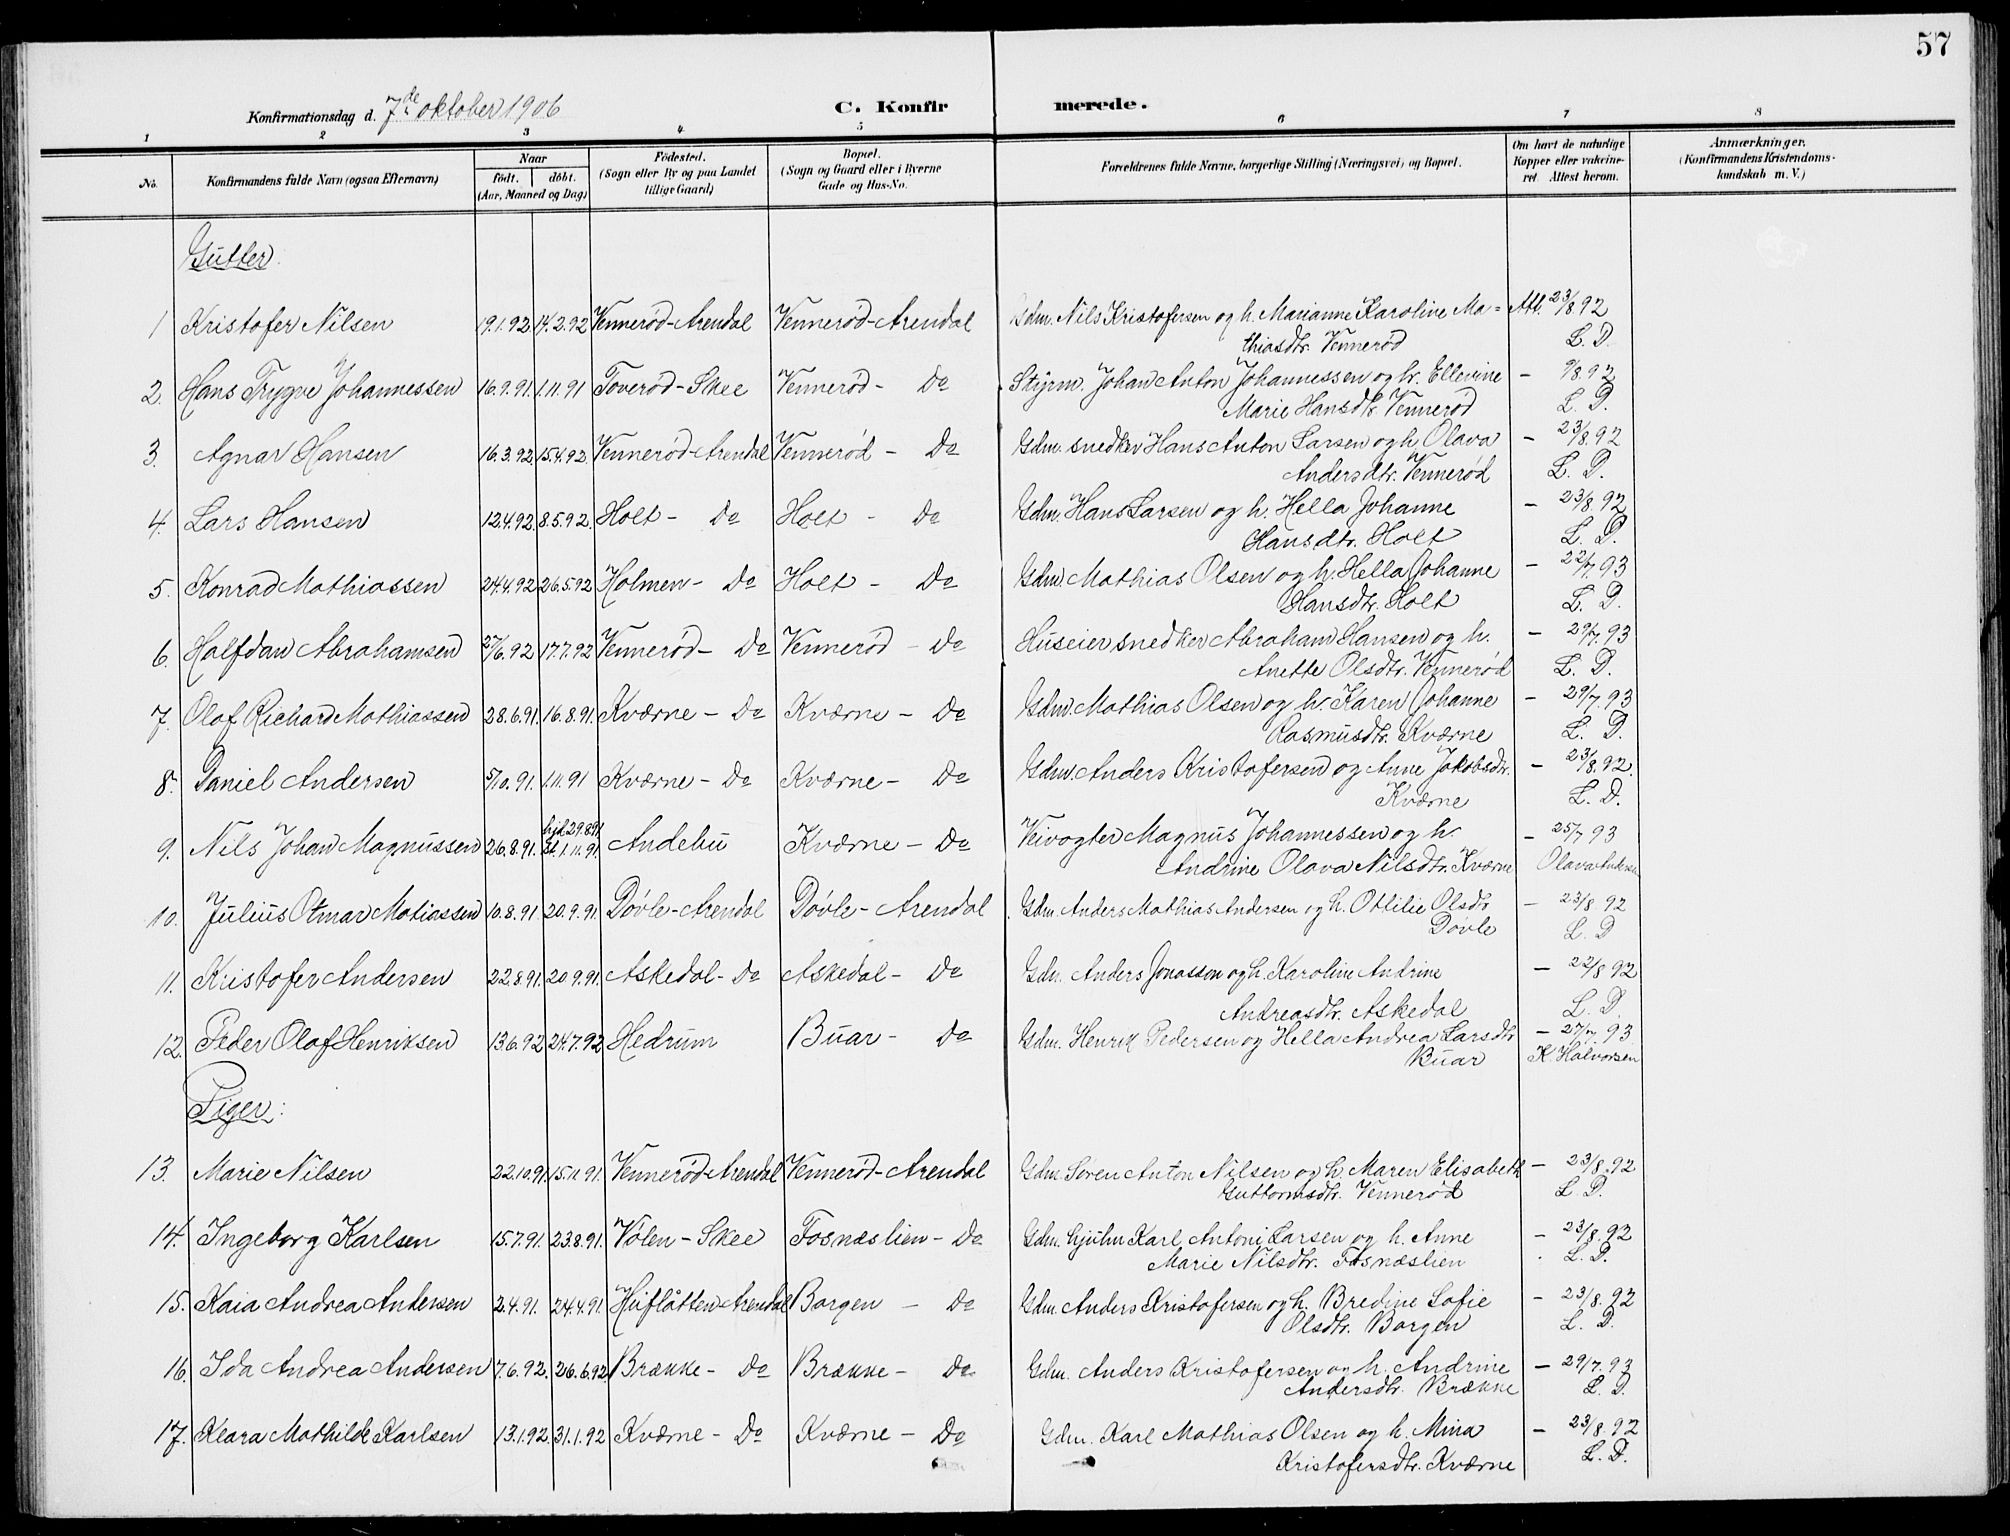 57
Konfirmationsdag d. 7de oktober 1906 C. Konfir merede.
1 2 3 4 5 6 7 8
No. Konfirmandens fulde Navn (ogsaa Efternavn) Naar født. døbt. (Aar, Maaned og Dag) Fødested. (Sogn eller By og paa Landet tillige Gaard) Bopæl. (Sogn og Gaard eller i Byerne Gade og Hus-No. Forældrenes fulde Navne, borgerlige Stilling (Næringsvei) og Bopæl. Om havt de naturlige Kopper eller vakcineret. Attest herom. Anmærkninger. (Konfirmandens Kristendomskundskab m. V.)
Gutter
1 Kristofer Nilsen 19.1.92 14.2.92 Vennerød-Arendal Vennerød-Arendal Gdm. Nils Kristofersen og h. Marianne Karoline Ma= Att. 23/8 92
thiasdtr. Vennerød L. D.
2. Hans Trygve Johannessen 16.9.91. 1.11.91 Toverød-Skee Vennerød- Do Styrm. Johan Anton Johannessen og h. Ellevine - 9/8.92
Marie Hansdtr. Vennerød L. D.
3. Agnar Hansen 16.3.92. 15.4.92. Vennerød-Arendal Vennerød - Do Gdm. snedker Hans Anton Larsen og h. Olava - 23/8.92
Andersdtr. Vennerød L. D.
4. Lars Hansen 12.4.92. 8.5.92. Holt - Do Holt - Do Gdm. Hans Larsen og h. Hella Johanne - 23/8.92
Hansdtr. Holt L. D.
5. Konrad Mathiassen 24.4.92 26.5.92 Holmen- Do Holt - Do Gdm Mathias Olsen og h. Hella Johanne - 22/7.93
Hansdtr. Holt L. D.
6. Halfdan Abrahamsen 27/6.92 17.7.92 Vennerød- Do Vennerød - Do Huseier snedker Abraham Hansen og h. - 29/7.93
Anette Olsdtr. Vennerød L. D.
7. Olaf Richard Mathiassen 28.6.91. 16.8.91. Kværne - Do Kværne - Do Gdm. Mathias Olsen og h. Karen Johanne - 29/7.93
Rasmusdtr. Kværne L. D.
8. Daniel Andersen 5/10.91. 1.11.91 Kværne - Do Kværne - Do Gdm. Anders Kristofersen og Anne Jakobsdtr. - 23/8.92.
Kværne L. D.
9. Nils Johan Magnussen 26.8.91. hjd. 29.8.91. 1.11.91. Andebu Kværne - Do Veivogter Magnus Johannessen og h. - 25/7 93
Andrine Olava Nilsdtr. Kværne Olava
10. Julius Otmar Matiassen 10.8.91. 20.9.91. Døvle-Arendal Døvle-Arendal Gdm. Anders Mathias Andersen og h. Otlilie Olsdtr - 23/8 92
Døvle L. D
11. Kristofer Andersen 22.8.91. 20.9.91. Askedal- Do Askedal- Do Gdm. Anders Jonasson og h. Karoline Andrine - 22/8 92
Andreasdtr. Askedal L. D.
12. Peder Olaf Henriksen 13.6.92 24.7.92 Hedrum Buar - Do Gdm. Henrik Pedersen og Hella Andrea Larsdtr - 27/7.93
Buar K. Halvorsen
Piger:
13. Marie Nilsen 22.10.91. 15.11.91. Vennerød-Arendal Vennerød-Arendal Gdm. Søren Anton Nilsen og h. Maren Elisabeth - 23/8.92
Guttormsdtr. Vennerød L. D.
14. Ingeborg Karlsen 15.7.91. 23.8.91. Vølen-Skee Fosnæslien- Do Gdm. hjulm Karl Antoni Larsen og h. Anne - 23/8.92
Marie Nilsdtr. Fosnæslien L. D.
15. Kaia Andrea Andersen 2.4.91. 24.4.91. Huflåtten-Arendal Borgen - Do Gdm. Anders Kristofersen og h. Bredine Sofie - 23/8.92
Olsdtr. Borgen L. D.
16. Ida Andrea Andersen 7.6.92. 26.6.92 Brække- Do Brække- Do Gdm. Anders Kristofersen og h. Andrine - 29/7.93
Andersdtr. Brække L. D.
17. Klara Mathilde Karlsen 13.1.92. 31.1.92 Kværne- Do Kværne - Do Gdm. Karl Mathias Olsen og h. Mina - 23/8.92
Kristofersdtr. Kværne L. D.